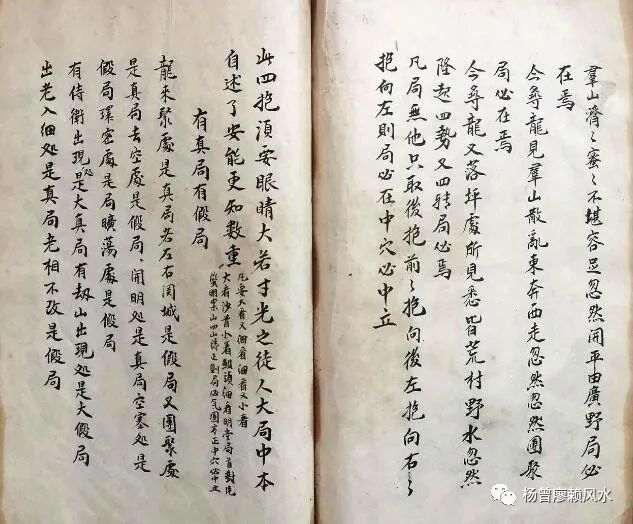 羣山濟〻密〻不堪容足忽然開平由廣野局必
在焉
今尋龍見羣山散亂東奔西走忽然忽然團聚
局必在焉
今尋龍又落坪處所見悉皆荒村野水忽然
隆起四勢又四轉局必焉
凡局無他只取後抱前〻抱向後左抱向右〻
抱向左則局必在中穴必中立
此四抱須要眼睛大若寸光之徒人大局中本
自述了安能更知數重
凡要大看又細看細看又小看
大看沙首小看顛頭細看明堂局首對
明案山四山歸正則局必氣團方正中穴必中立
有真局有假局
龍來聚處是真局若左右闊城是假局又團聚處
是真局去空處是假局開明処是真局空塞処是
假局環密處是局曠蕩處是假局
有侍衛出現処是大真局有劫山出現処是大假局
出老入細処是真局老相不改是假局
杨曾廖赖风水